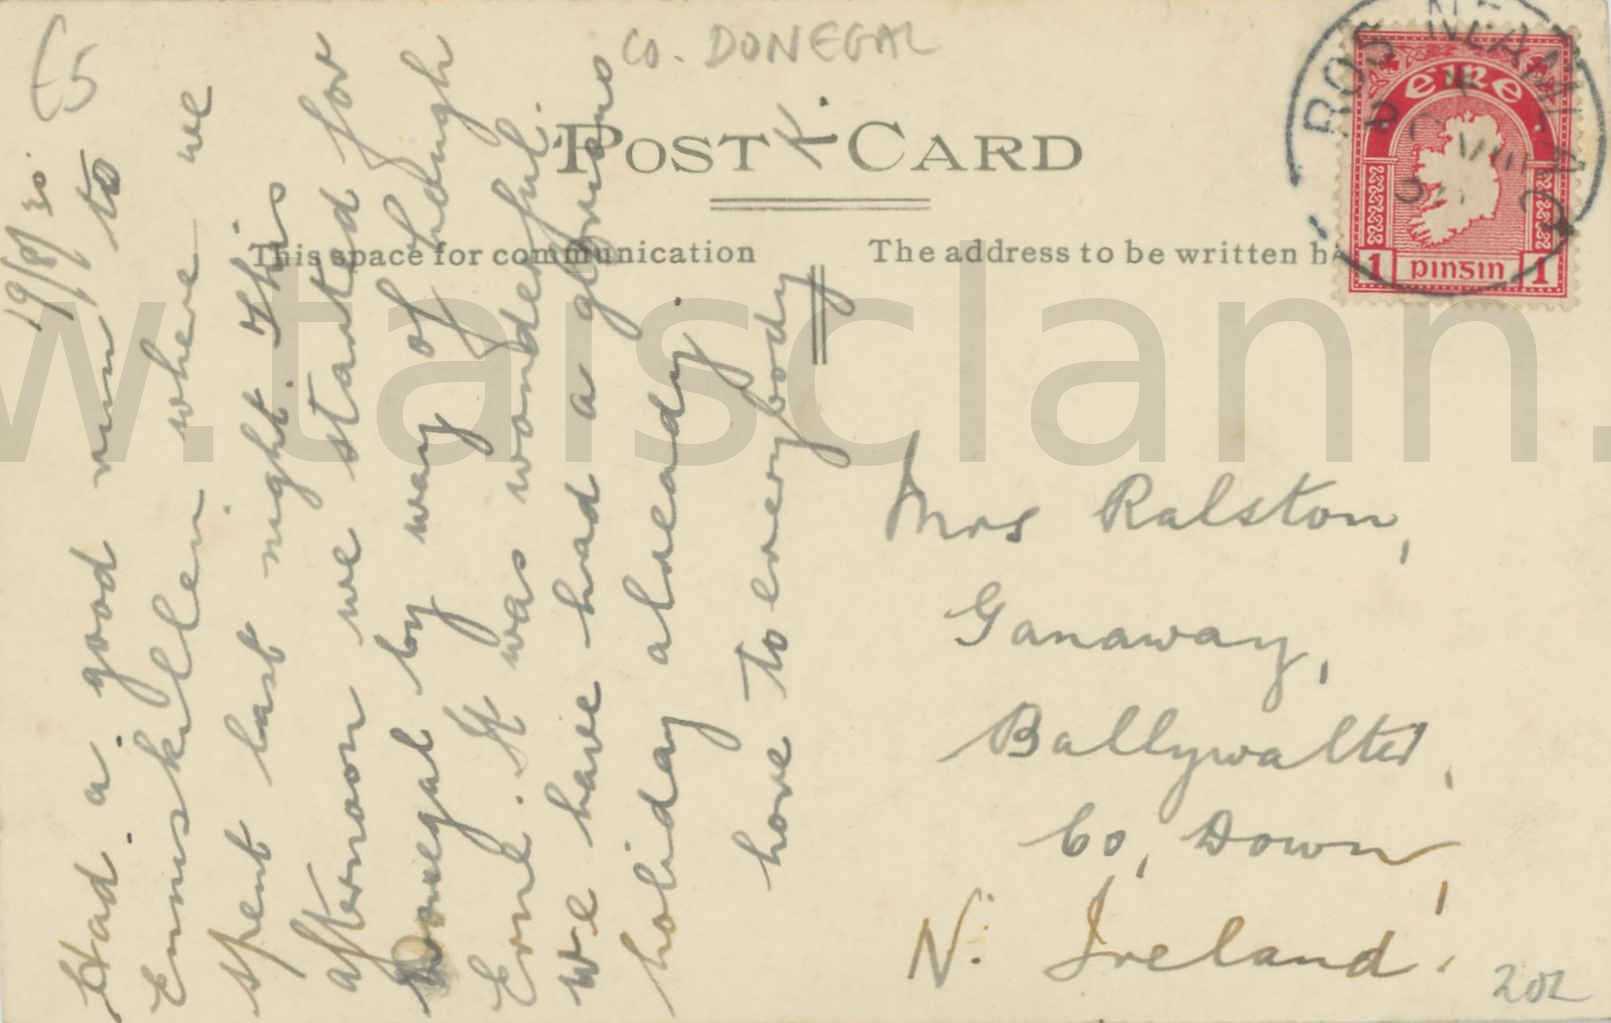 £5
Co. DONEGAL
POST CARD
K.
This space for communication
The address to be written
19/8/30
Had a good run to
Enniskillen where we
spent last night. This
afternoon we started for
Donegal by way of Lough
Erne. It was wonderful.
We have had a glorious
holiday already.
love to everybody
Mrs Ralston,
Ganaway,
Ballywalter,
Co, Down,
N. Ireland.
202
éire
1 pinsin 1
w.taisclann.